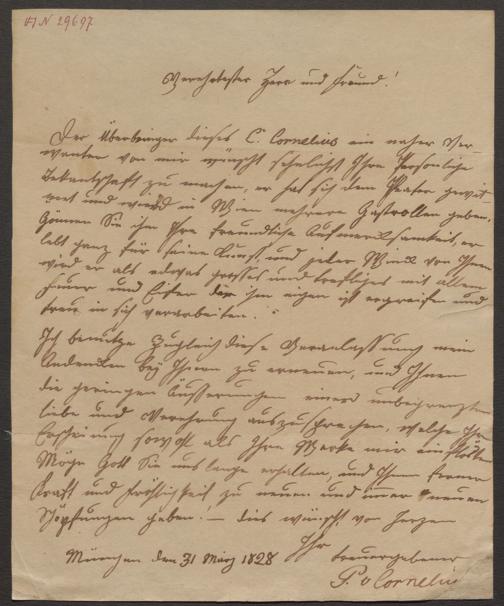 HIN 29697
Verehrtester Herr und Freund!
Der Überbringer dieses C. Cornelius ein naher Ver-
wanter von mir wünscht sehnlichst Ihre Persönliche
Bekantschaft zu machen, er hat sich dem Theater gewit
met und wird in Wien mehrere Gastrollen geben,
Gönnen Sie ihm Ihre freundliche Aufmerksamkeit, er
lebt ganz für seine Kunst, und jeden Wink von Ihnen
wird er als etwas grosses und trefliches mit allem
Feuer und Eifer der ihm eigen ist ergreifen und
treu in sich verarbeiten.
Ich benutze zugleich diese Veranlassung mein
Andenken bey Ihnen zu erneuen, und Ihnen
die geringen Äusserungen einer unbegrenzten
Liebe und Verehrung auszusprechen, welche Ihre
Erscheinung sowohl als Ihre Werke mir
Möge Gott Sie uns lange erhalten, und Ihnen ferner
Kraft und Fröhlichkeit zu neuen und imer neuen
Schöpfungen geben! – dies wünscht von Herzen
Ihr
München den 31 März 1828 treuergebener
P. v Cornelius